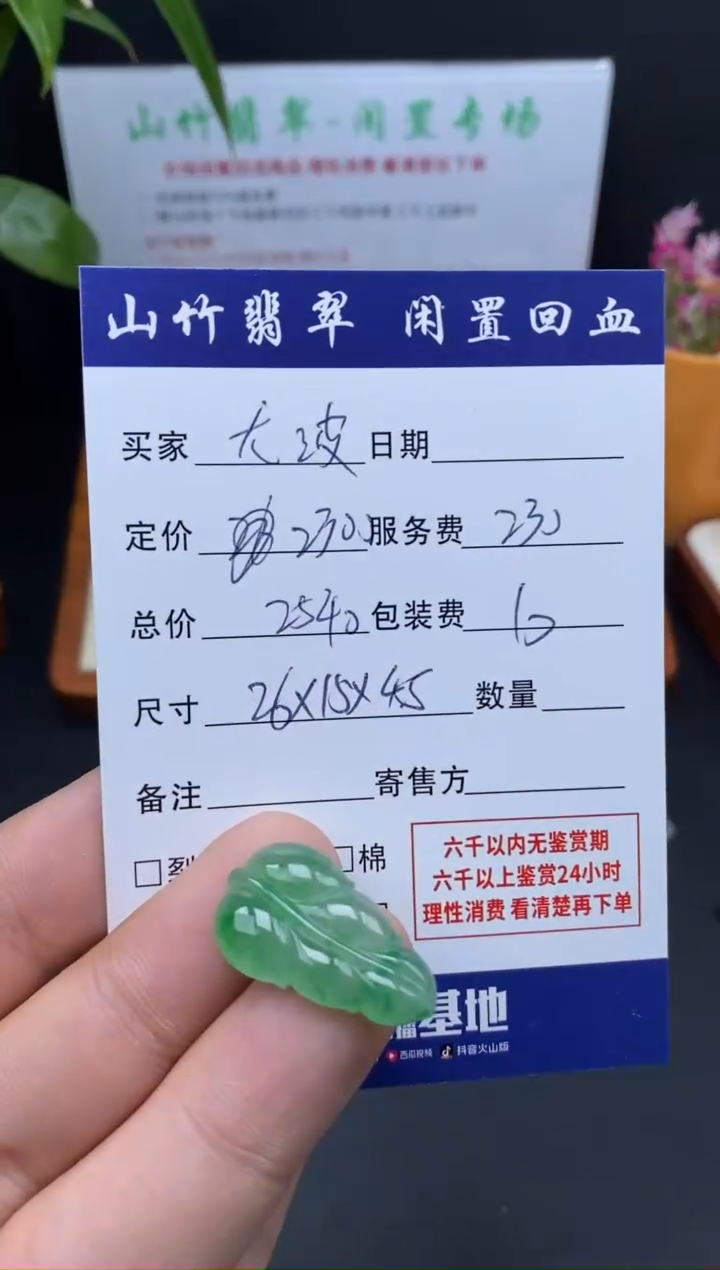 山竹翡翠-闲置专场
山竹翡翠 闲置回血
买家 大波 日期
定价 2300 服务费 230
总价 2540 包装费 10
尺寸 26X15X4.5 数量
备注 寄售方
□裂 □棉
六千以内无鉴赏期
六千以上鉴赏24小时
理性消费 看清楚再下单
播基地
西瓜视频 抖音火山版